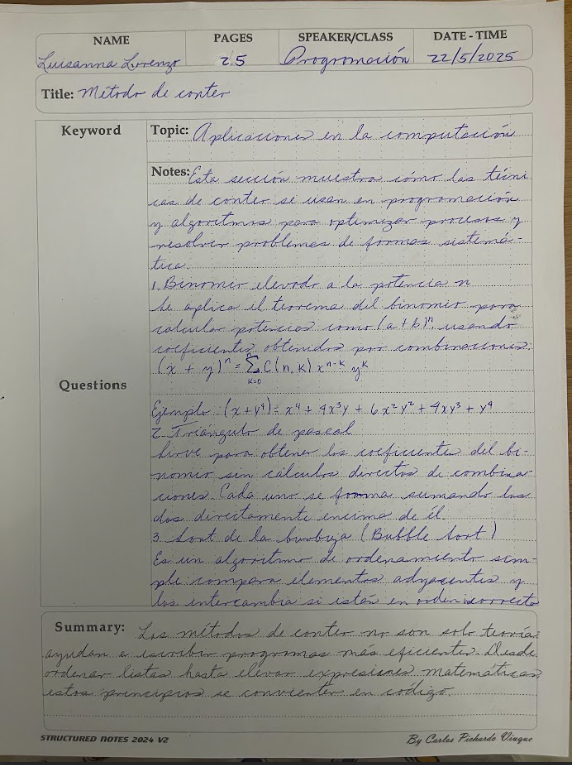 NAME PAGES SPEAKER/CLASS DATE - TIME
Luisanna Lorenzo 25 Programación 22/5/2025
Title: Metodo de conteo
Keyword
Topic: Aplicaciones en la computación
Notes: Esta sección muestra cómo las técni
cas de conteo se usan en programación
y algoritmos para optimizar procesos y
resolver problemas de formas sistemá-
tica.
1. Binomio elevado a la potencia n
Se aplica el teorema del binomio para
calcular potencias como (a+b)ⁿ usando
coeficientes obtenidos por combinaciones:
(x + y)ⁿ = Σ C(n,k) xⁿ⁻ᵏ yᵏ
n
k=0
Questions
Ejemplo: (x+y⁴) = x⁴ + 4x³y + 6x²y² + 4xy³ + y⁴
2. Triángulo de pascal
Sirve para obtener los coeficientes del bi-
nomio sin cálculos directos de combina-
ciones. Cada uno se forma sumando los
dos directamente encima de él.
3. Sort de la burbuja (Bubble Sort)
Es un algoritmo de ordenamiento sim-
ple compara elementos adyacentes y
los intercambia si están en orden incorrecto
Summary: Los métodos de conteo no son solo teoría
ayudan a escribir programas más eficientes. Desde
ordenar listas hasta elevar expresiones matemáticas
estos principios se convierten en codigo.
STRUCTURED NOTES 2024 V2
By Carlos Pichardo Vinque